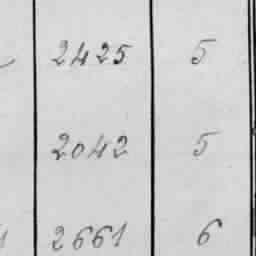 2425 5
2042 5
2661 6